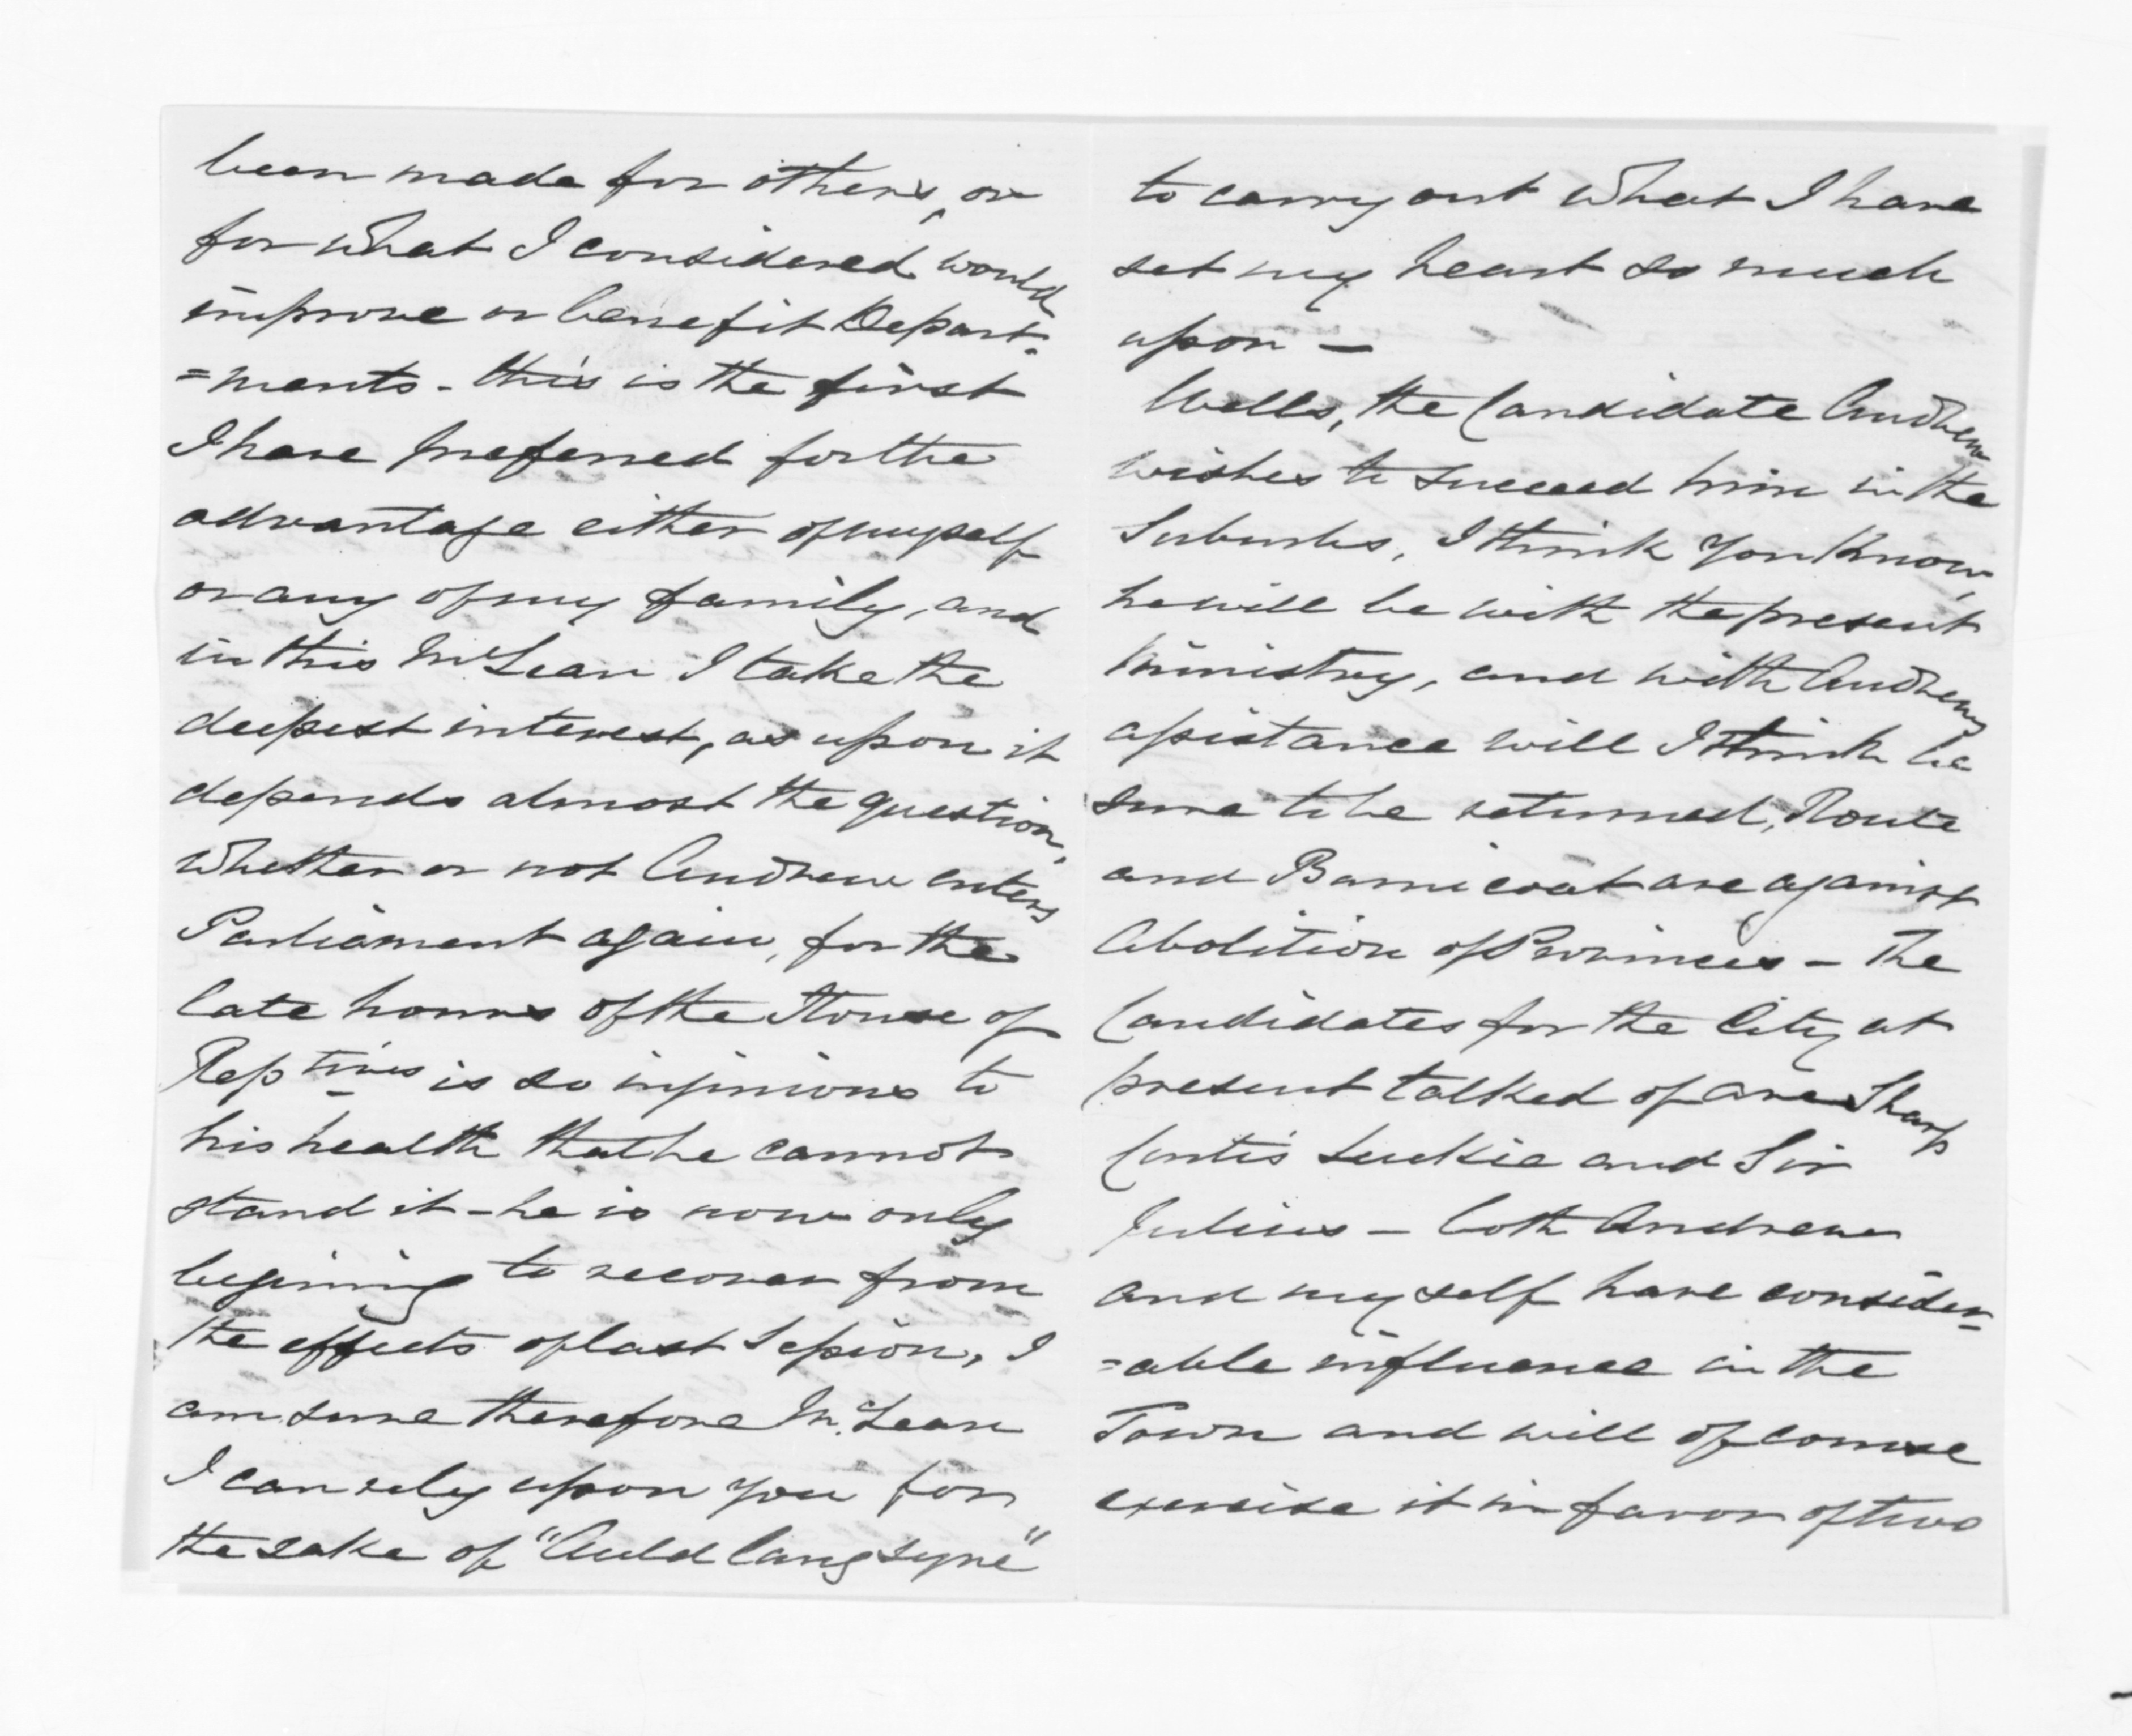 been made for others, or
for what I considered would
improve or benefit Depart-
=ments - this is the first
I have preferred for the
advantage either of myself
or any of my family, and
in this McLean I take the
deepest interest, as upon it
depends almost the question,
whether or not Andrew enters
Parliament again, for the
late hours of the House of
Reptives is so injurious to
his health that he cannot
stand it - he is now only
begining to recover from
the effects of last Session, I
am sure therefore McLean
I can rely upon you for
the sake of "Auld lang syne"
to carry out what I have
set my heart so much
upon -
Wells, the Candidate Andrew
wishes to succeed him in the
Suburbs, I think you know,
he will be with the present
Ministry, and with Andrews
assistance will I think be
sure to be returned,
and Barnicoat are against
Abolition of Provinces - The
Candidates for the City at
present talked of are Sharp
Curtis Luckie and Sir
Julius - both Andrew
and myself have consider-
=able influence in the
Town and will of course
exercise it in favor of two